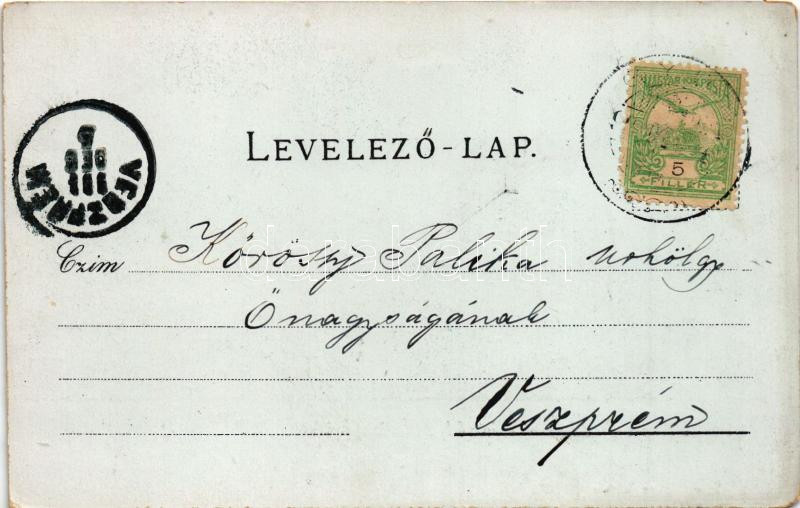 LEVELEZŐ-LAP.
MAGYAR KIR. POSTA
5
FILLÉR
VESZPRÉM
Czim
Kőrössy Palika urhölgy
Őnagyságának
Veszprém